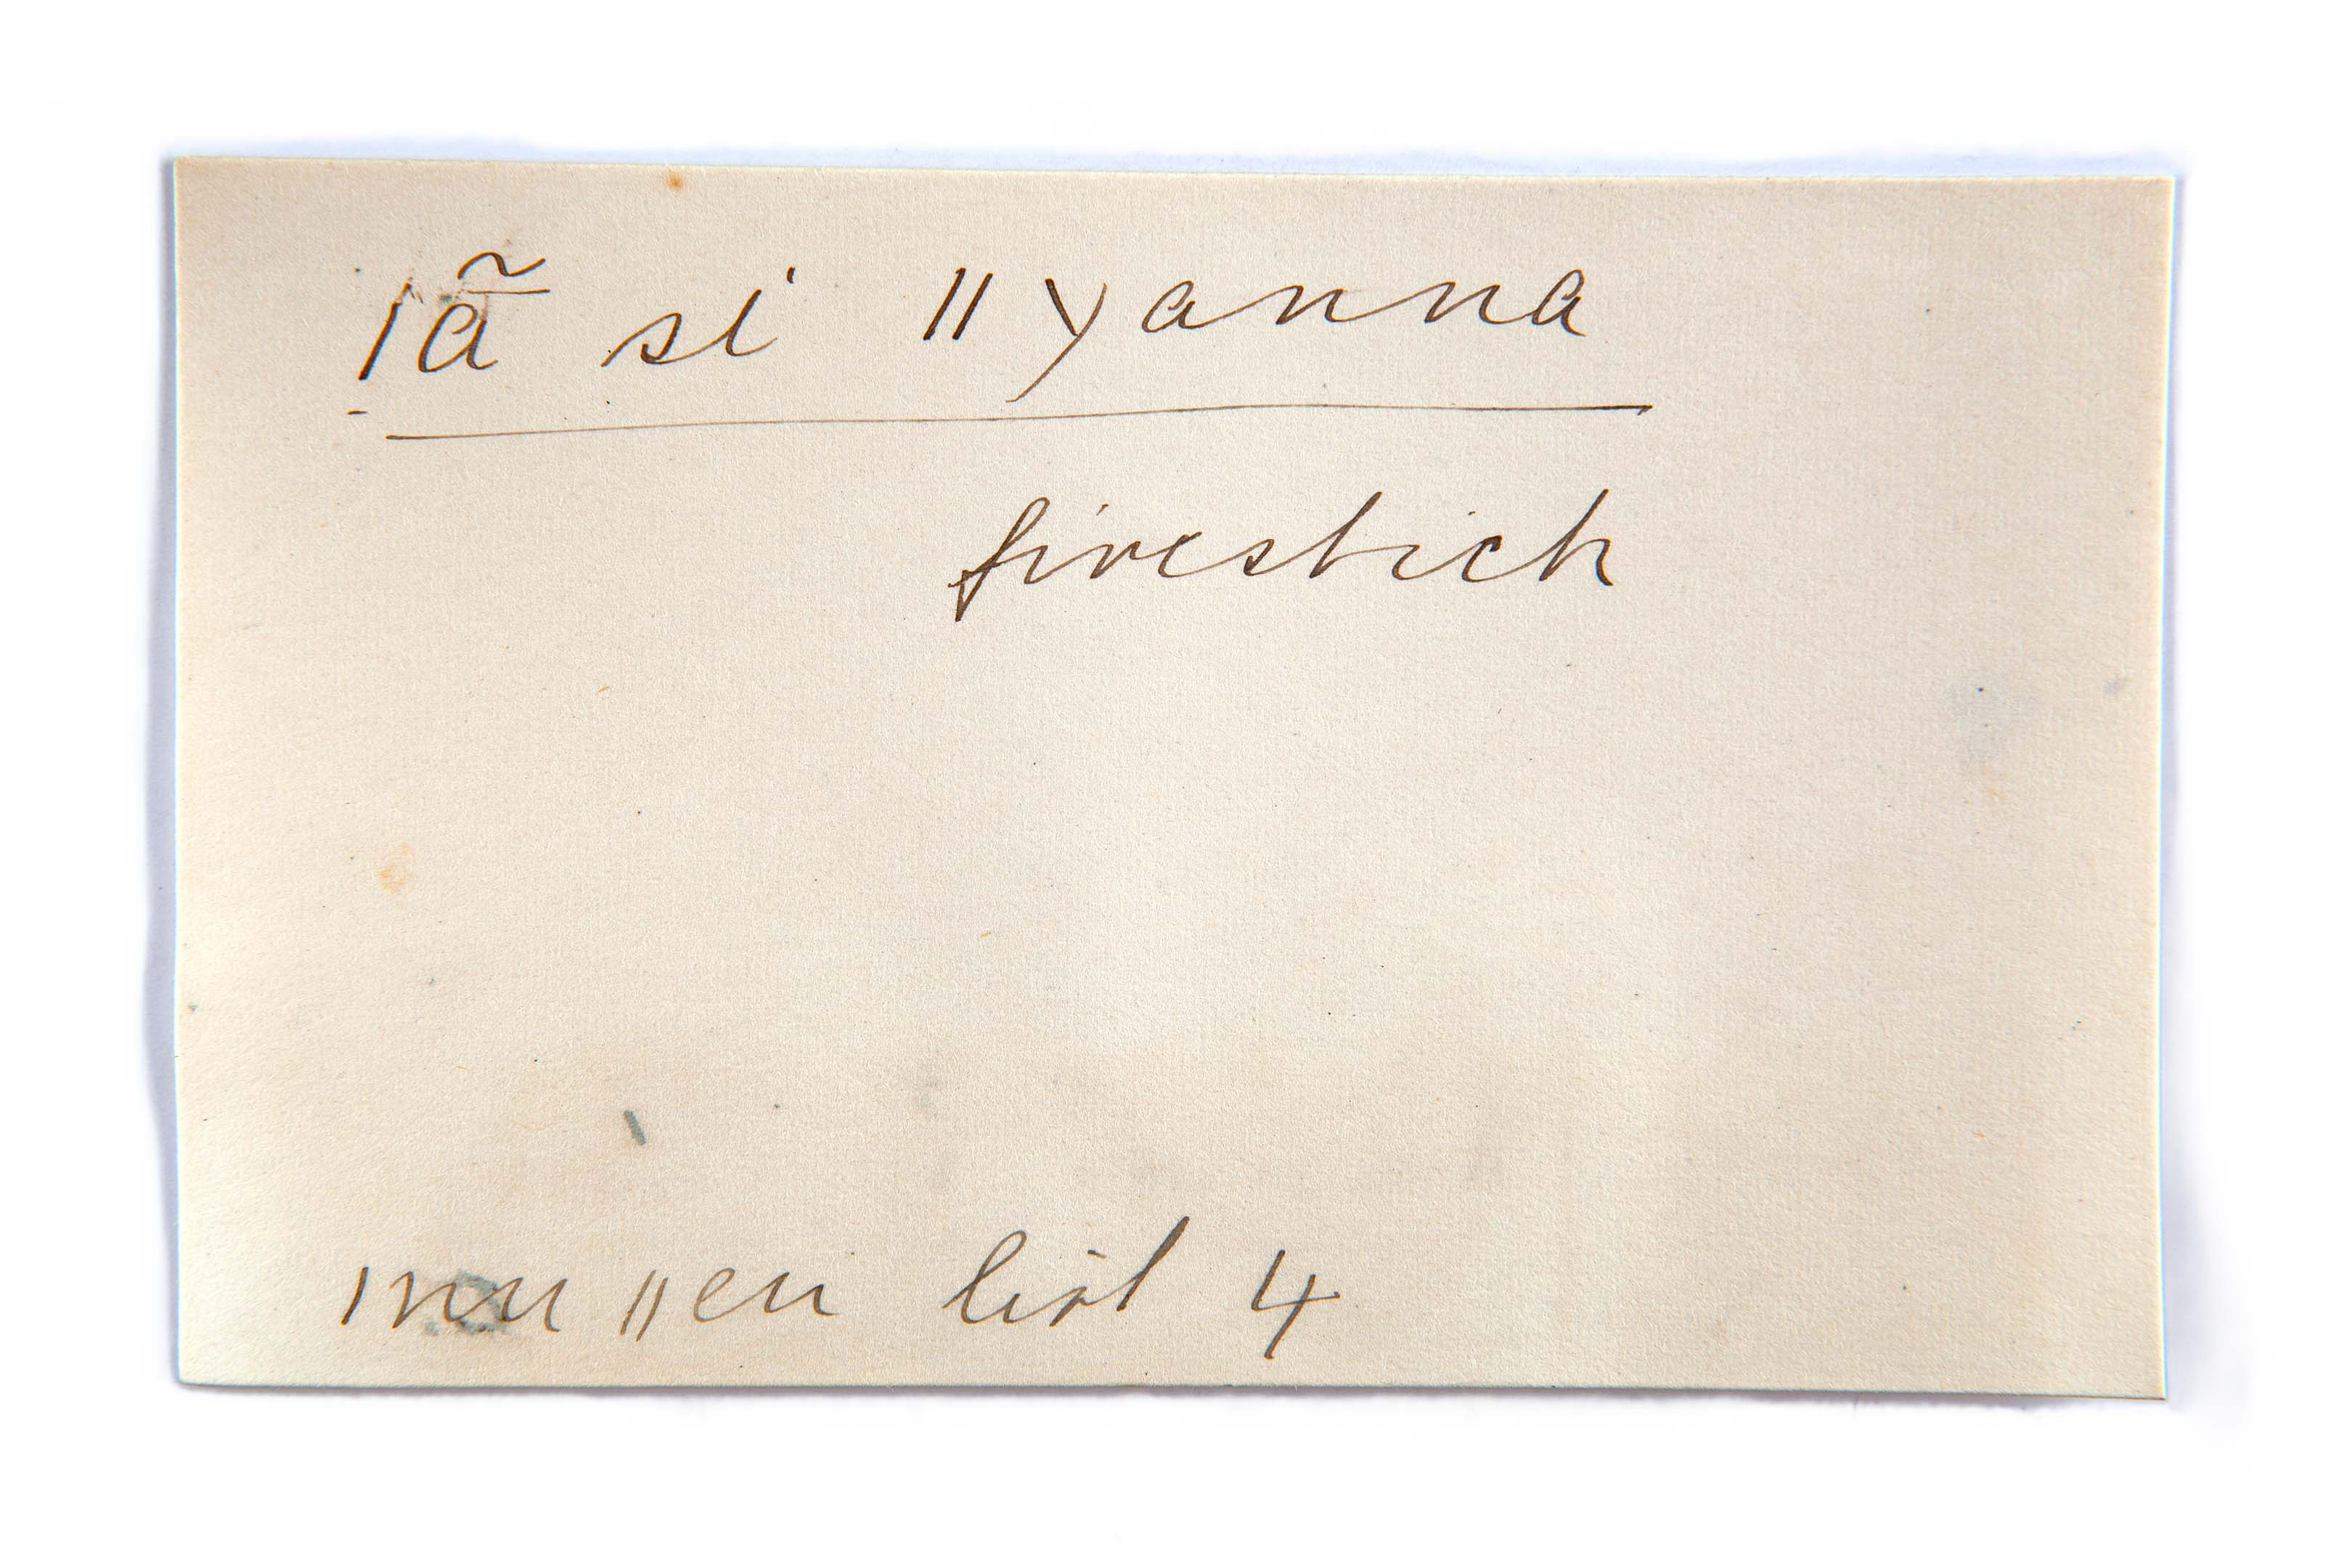 |ã̄ si ǁ yanna
firestick
ǀnu ǁen list 4